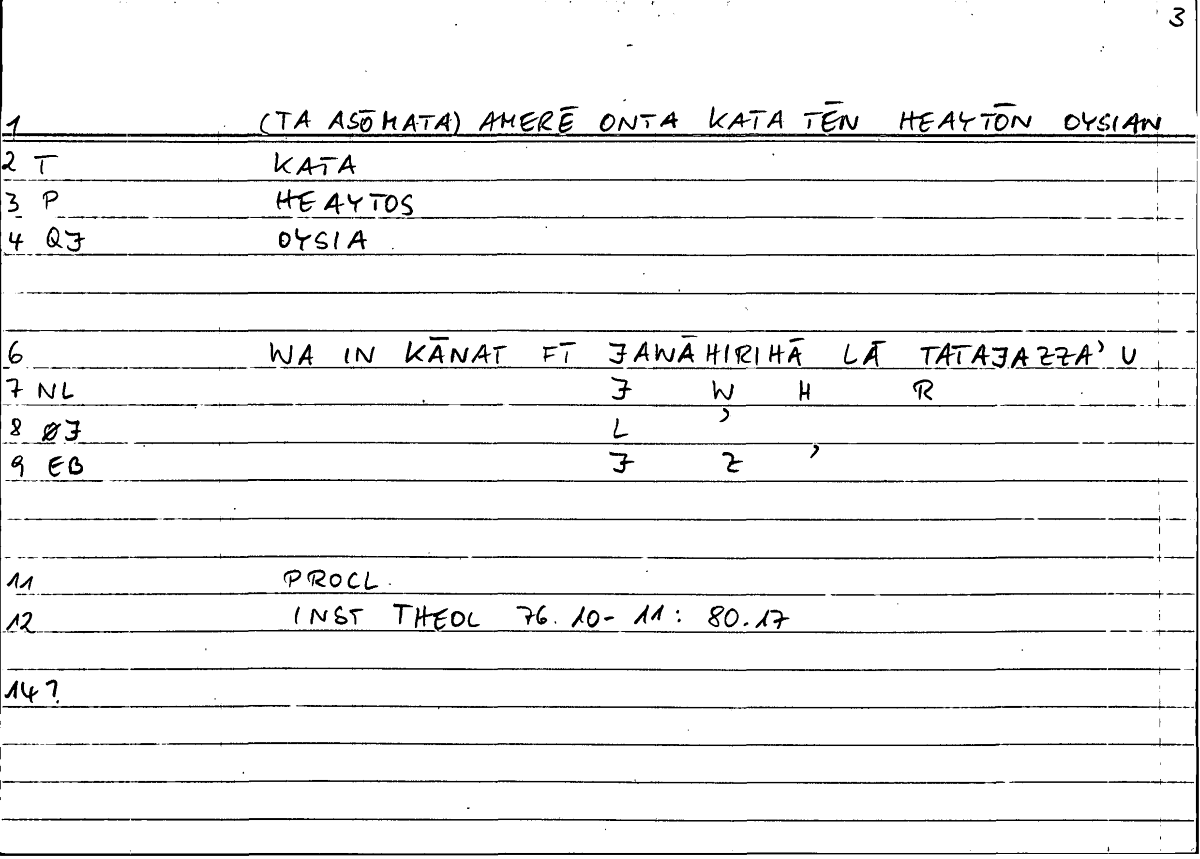 3
1 (TA ASŌMATA) AMERĒ ONTA KATA TĒN HEAYTŌN OYSIAN
2 T KATA
3 P HEAYTOS
4 QJ OYSIA
6 WA IN KĀNAT FĪ JAWĀHIRIHĀ LĀ TATAJAZZA'U
7 NL J W H R
8 ØJ L '
9 EB J Z '
11 PROCL.
12 INST THEOL 76.10-11: 80.17
14 ?